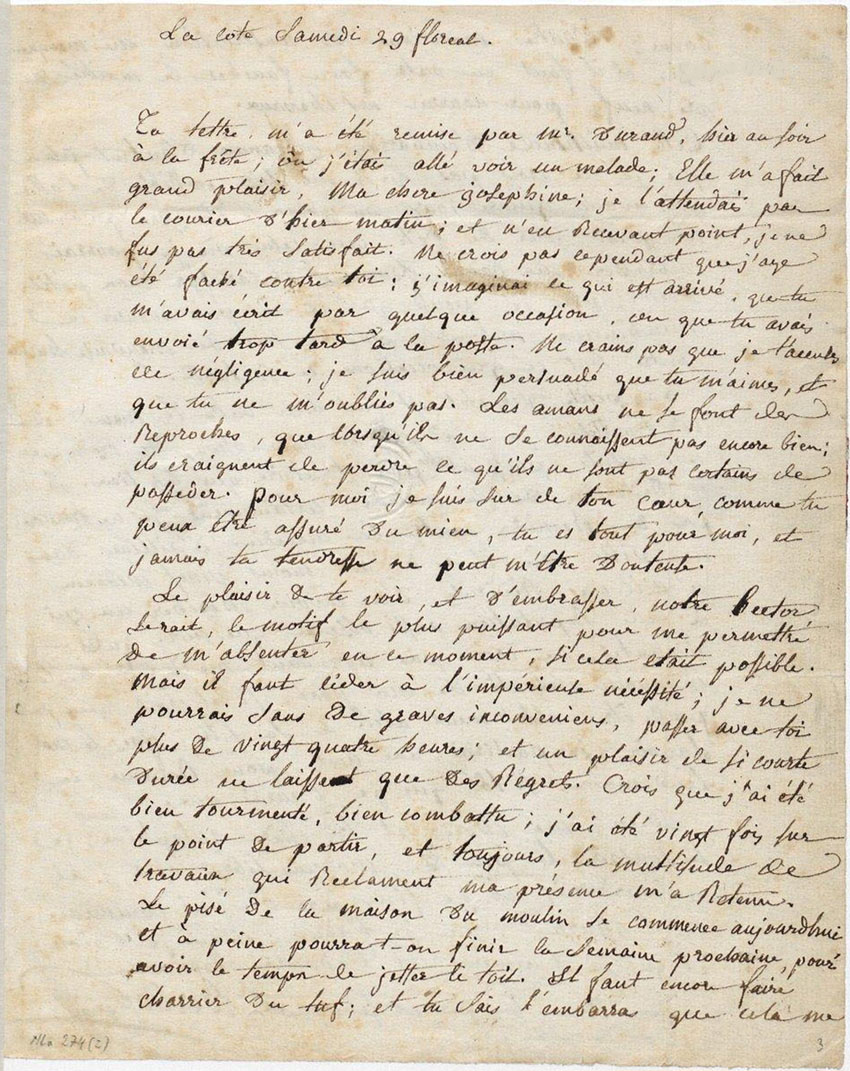 La cote Samedi 29 floreal.
Ta lettre m'a été remise par mr. Durand, hier au soir
à la frête; ou j'étai allé voir un malade; Elle m'a fait
grand plaisir, Ma chere josephine; je l'attendais par
le courier d'hier matin; et n'en Recevant point, je ne
fus pas très satisfait. Ne crois pas cependant que j'aye
été faché contre toi; j'imaginai ce qui est arrivé, que tu
m'avais écrit par quelque occasion, ou que tu avais
envoié trop tard à la poste. Ne crains pas que je t'accuse
de négligence; je suis bien persuadé que tu m'aimes, et
que tu ne m'oublies pas. Les amans ne se font des
Reproches, que lorsqu'ils ne se connaissent pas encore bien;
ils craignent de perdre ce qu'ils ne sont pas certains de
posseder. pour moi je suis sur de ton cœur, comme tu
peux être assuré du mien, tu es tout pour moi, et
jamais ta tendresse ne peut m'être douteuse.
Le plaisir de te voir, et d'embrasser, notre hector
serait, le motif le plus puissant pour me permettre
de m'absenter en ce moment, si cela etait possible.
Mais il faut céder à l'impérieuse nécéssité; je ne
pourrais sans de graves inconveniens, passer avec toi
plus de vingt quatre heures; et un plaisir de si courte
durée ne laissent que des Régrets. Crois que j'ai été
bien tourmenté, bien combattu; j'ai été vingt fois sur
le point de partir, et toujours, la multitude de
travaux qui Réclament ma présence m'a Retenu.
Le pisé de la maison du moulin se commence aujourdhui
et à peine pourra-t-on finir la semaine prochaine, pour
avoir le temps de jetter le toit. Il faut encore faire
charrier du tuf; et tu sais l'embarras que cela me
NLa 274(2)
3